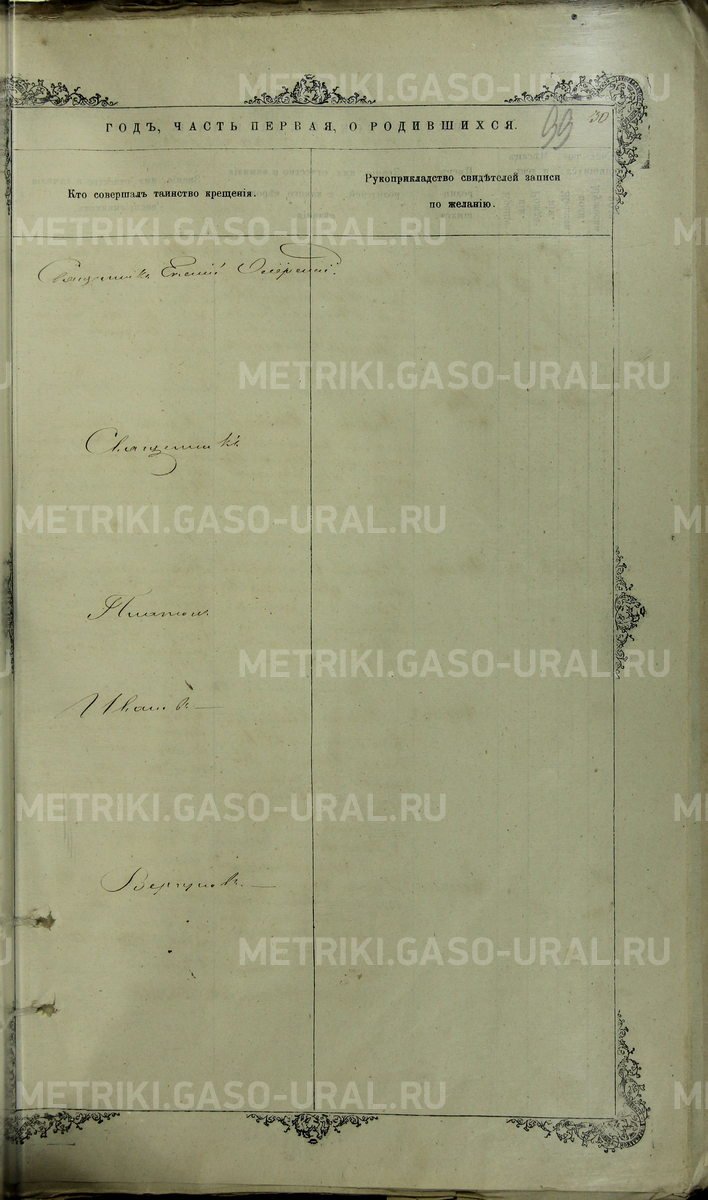 METRIKI.GASO-URAL.RU
ГОДЪ, ЧАСТЬ ПЕРВАЯ, О РОДИВШИХСЯ.
99
30
Кто совершалъ таинство крещенія.
Рукоприкладство свидѣтелей записи
по желанію.
METRIKI.GASO-URAL.RU
Священникъ
METRIKI.GASO-URAL.RU
Священникъ
METRIKI.GASO-URAL.RU
Платонъ
METRIKI.GASO-URAL.RU
Ивановъ
METRIKI.GASO-URAL.RU
METRIKI.GASO-URAL.RU
METRIKI.GASO-URAL.RU